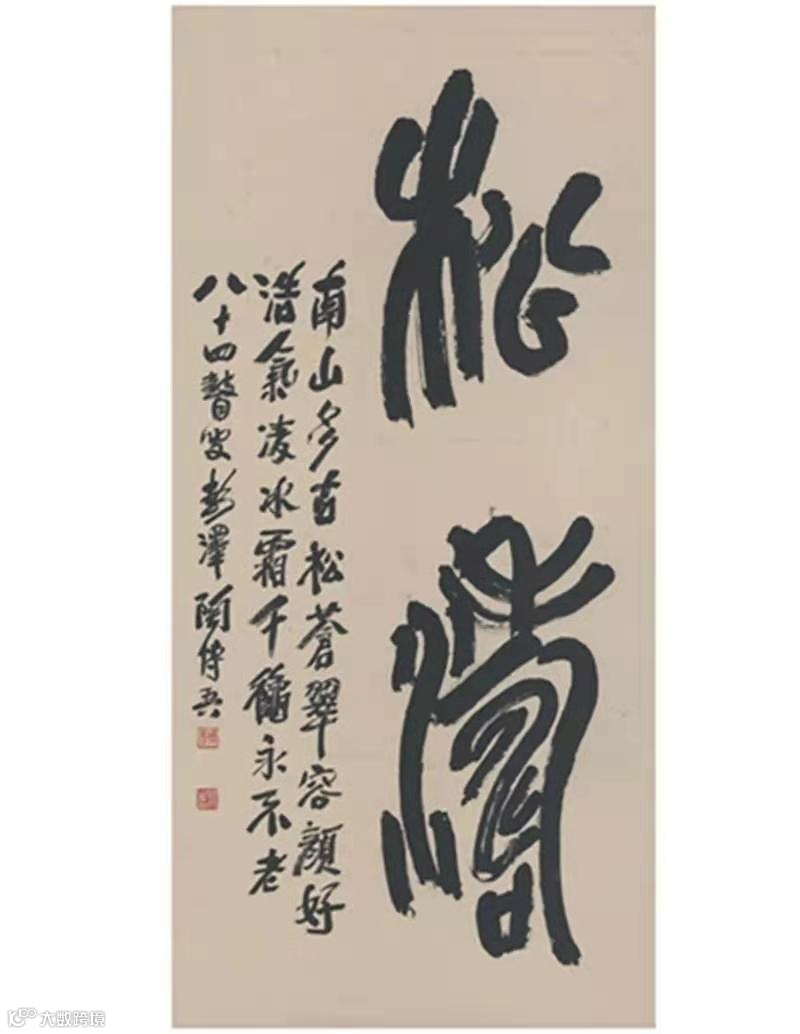 松濤
南山多古松蒼翠容顔好
浩氣凌冰霜千穐永不老
八十四瞽叟彭澤陶博吾
大数跨境